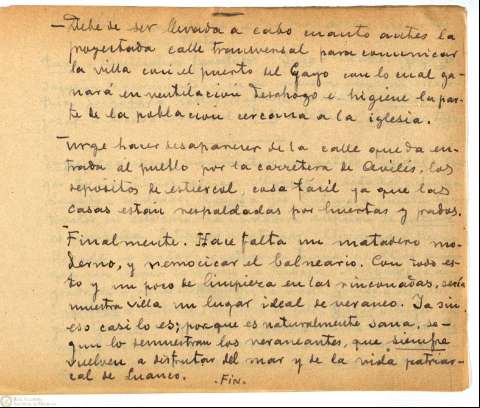 — Debe de ser llevada a cabo cuanto antes la
proyectada calle transversal para comunicar
la villa con el puerto del Gayo con lo cual ga-
nará en ventilación desahogo e higiene la par-
te de la población cercana a la iglesia.
— Urge hacer desaparecer de la calle que da en-
trada al pueblo por la carretera de Avilés, los
depósitos de estiercol, cosa fácil ya que las
casas están respaldadas por huertas y prados.
Finalmente. Hace falta un matadero mo-
derno, y remocicar el balneario. Con todo es-
to y un poco de limpieza en las rinconadas, sería
nuestra villa un lugar ideal de veraneo. Ya sin
eso casi lo es; porque es naturalmente sana, se-
gun lo demuestran los veraneantes, que siempre
vuelven a disfrutar del mar y de la vida patriar-
cal de Luanco. . Fin.